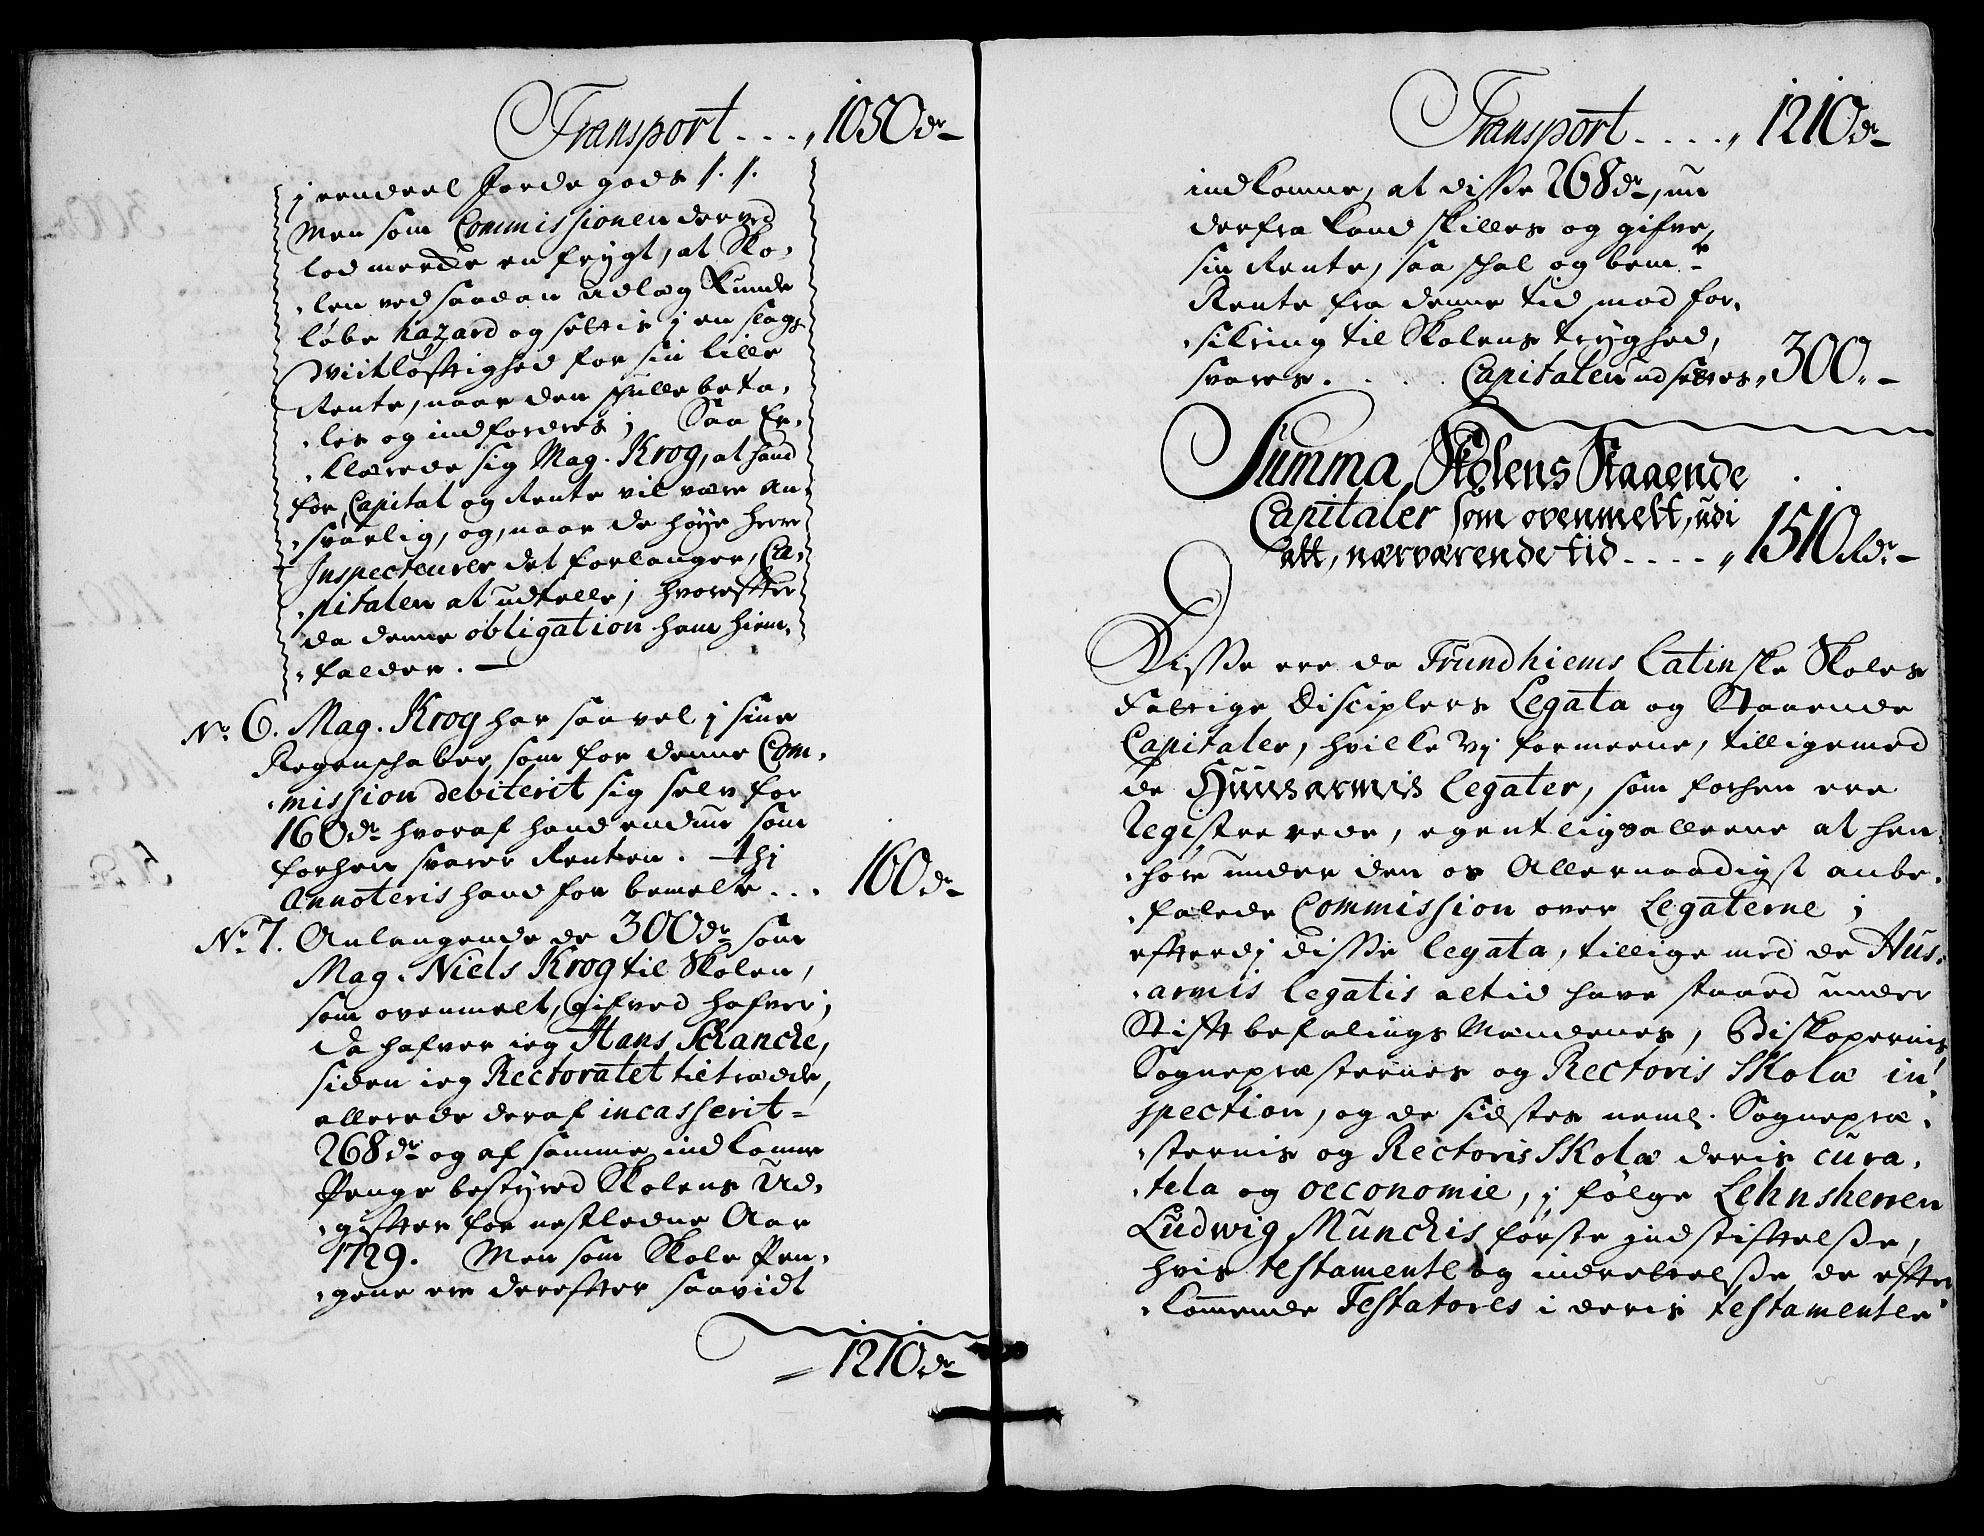 Transport . . . „ 1050 dr
j eendeel Jorde gods /. /.
Men som Commissionen derved
lod merke en frygt, at Sko„
„len ved saadan Udlæg kunde
løbe hazard og settis j en slags
Viitløftighed for sin lille
Rente, naar den skulle beta„
„les og indfordres; Saa Er„
„klærede sig Mag. Krog, at hand
for Capital og Rente vil være An„
„svarlig, og, naar de høye herrer
Inspecteurer det forlanger, Ca„
„pitalen at udtelle; hvorefter
da denne obligation ham hiem„
„falder. —
No. 6. Mag. Krog har saavel j sine
Regenschaber, som for denne Com„
„mission debiterit sig selv for
160 dr hvoraf hand endnu som
forhen svarer Renten. thj
Annoteris hand for bemelte . . . 160 dr
No. 7. Anlangende de 300 dr som
Mag. Niels Krog til Skolen,
som ovenmelt, gifved hafver;
da hafver ieg Hans Schanche,
siden ieg Rectoratet tiltrædde,
allerede deraf incasserit
268 dr og af samme indkomne
Penge bestyred Skolens Ud„
„gifter for nestledne Aar
1729. Men som Skole Pen„
„gene ere derefter saavidt
1210 dr
Transport . . . . „ 1210 dr
indkomne, at disse 268 dr, nu
derfra kand skilles og gifve,
sin Rente, saa skal og bemte
Rente fra denne tid mod for„
„sikring til Skolens tryghed,
svares. . . . Capitalen udsættes „ 300 „ —
Summa, Skolens Staaende
Capitaler som ovenmelt, udi
alt, nærværende tid . . . . „ 1510 Rdr
Disse ere da Trundhiems Latinske Skoles
Fattige Disciplers Legata og Staaende
Capitaler, hvilke Vj formeene, tilligemed
de Huusarmis Legater, som forhen ere
Registrerede, egentlig allene at hen„
„høre under den os Allernaadigst anbe„
„falede Commission over Legaterne;
efterdj disse legata, tillige med de Hus„
„armis legatis altid have staaed under
Stiftbefalings Mændenes, Biskopernis,
Sognepræsternes og Rectoris Skolæ in„
spection, og de sidstes neml. Sognepræ„
„sternis og Rectoris Skolæ deris cura„
„tela og oeconomie, j følge Lehnsherren
Ludwig Munchis første Jndstiftelse,
hvis testamente og indrettelse de efter„
„kommende Testatores i deris testamenter